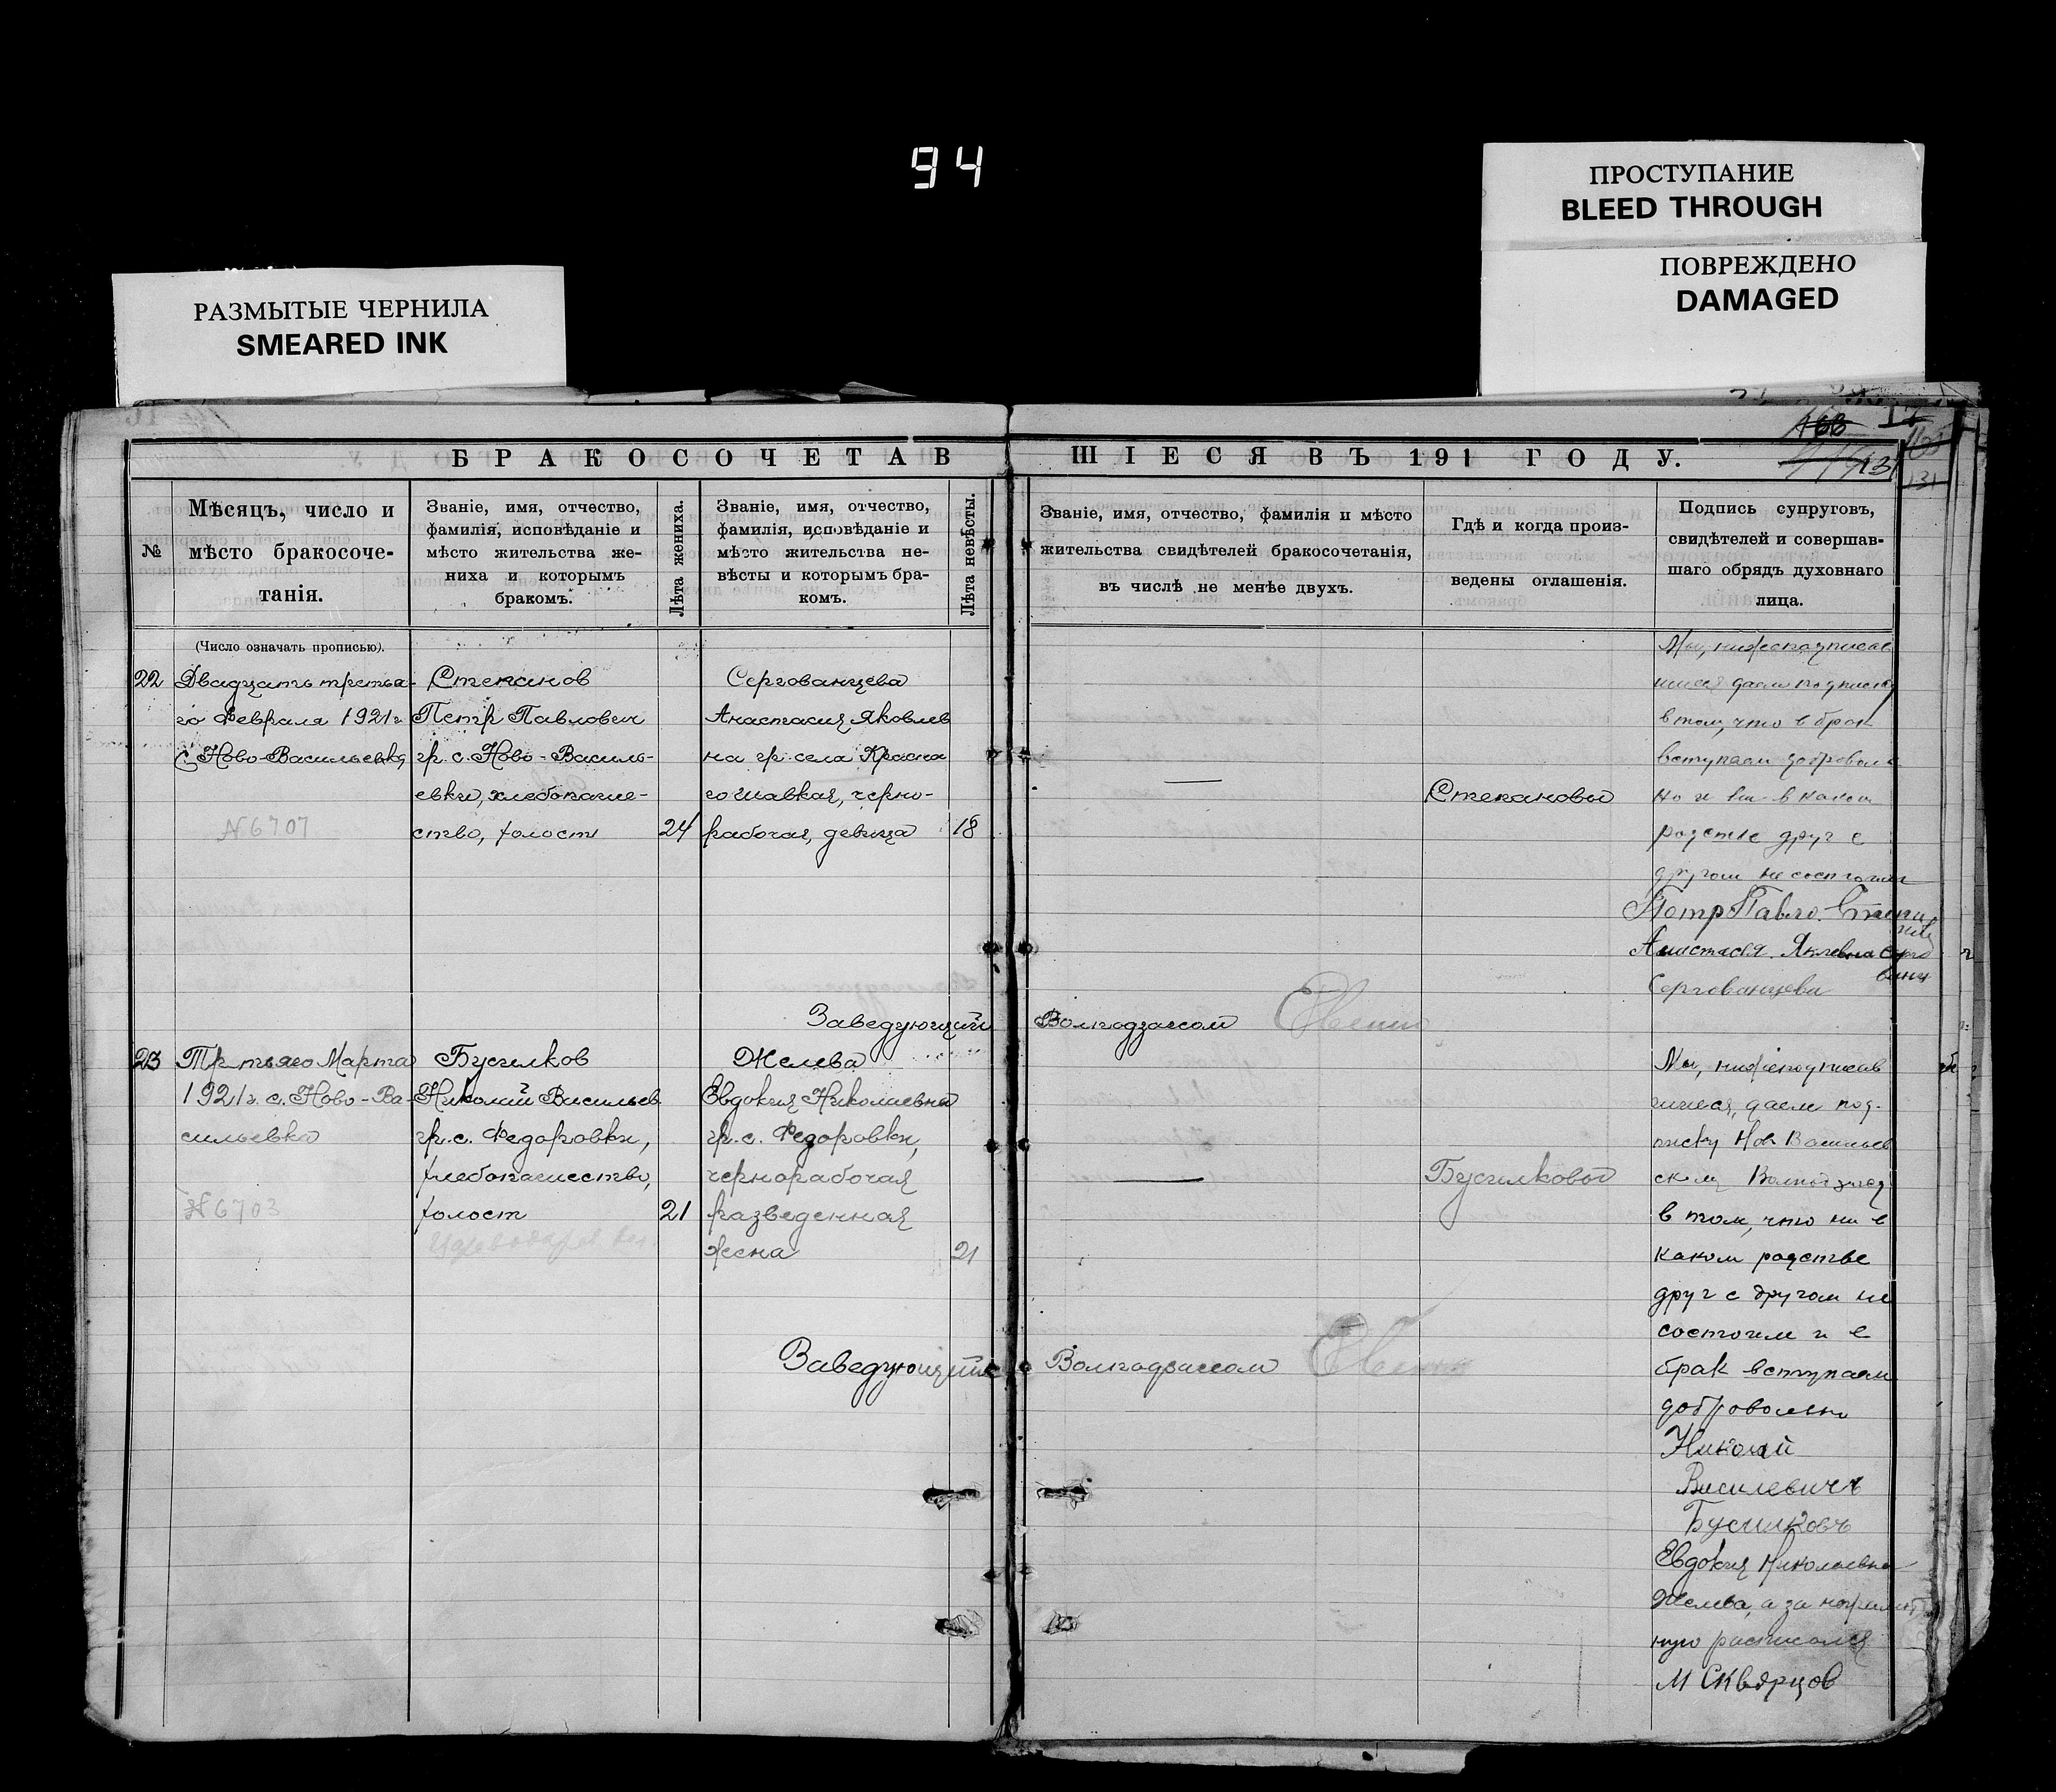 94
ПРОСТУПАНИЕ
BLEED THROUGH
ПОВРЕЖДЕНО
DAMAGED
РАЗМЫТЫЕ ЧЕРНИЛА
SMEARED INK
БРАКОСОЧЕТАВ
ШІЕСЯ ВЪ 191 ГОДУ.
131
131
№
Мѣсяцъ, число и
мѣсто бракосоче-
танія.
Званіе, имя, отчество,
фамилія, исповѣданіе и
мѣсто жительства же-
ниха и которымъ
бракомъ.
Лѣта жениха.
Званіе, имя, отчество,
фамилія, исповѣданіе и
мѣсто жительства не-
вѣсты и которымъ бра-
комъ.
Лѣта невѣсты.
Званіе, имя, отчество, фамилія и мѣсто
жительства свидѣтелей бракосочетанія,
въ числѣ не менѣе двухъ.
Гдѣ и когда произ-
ведены оглашенія.
Подпись супруговъ,
свидѣтелей и совершав-
шаго обрядъ духовнаго
лица.
(Число означать прописью).
22
Двадцать третья-
го Февраля 1921 г.
с. Ново-Васильевка,
№6707
Степанов
Петр Павлович
гр. с. Ново-Василь-
евки, хлебопаше-
ство, холост
24
Серговацева
Анастасия Яковлев
на гр. села Красна
чернo-
рабочая, девица
18
Степановы
Мы, нижеподписав
шиеся даем подписку
в том, что в брак
вступаем доброволь
но и ни в каком
родстве друг с
другом не состоим
Петр Павло. Степа
Анастасія
Заведующий
Волподзагсом
23
Третьяго Марта
1921 г. с. Ново-Ва-
сильевка
№6703
Бусилков
Николай Васильев
гр. с. Федоровки,
хлебопашество,
холост
21
Желева
Евдокия Николаевна
гр. с. Федоровки,
чернорабочая
разведенная
жена
21
Бусилковы
Мы, нижеподписав
шиеся, даем под-
писку Нов Васильев
скому
в том, что ни в
каком родстве
друг с другом не
состоим и в
брак вступаем
добровольно
Николай
Василевичъ
Бусилковъ
Евдокия Николаевна
Желева, а за неграмот
ную расписался
М Скварцов
Заведующий
Волподзагсом